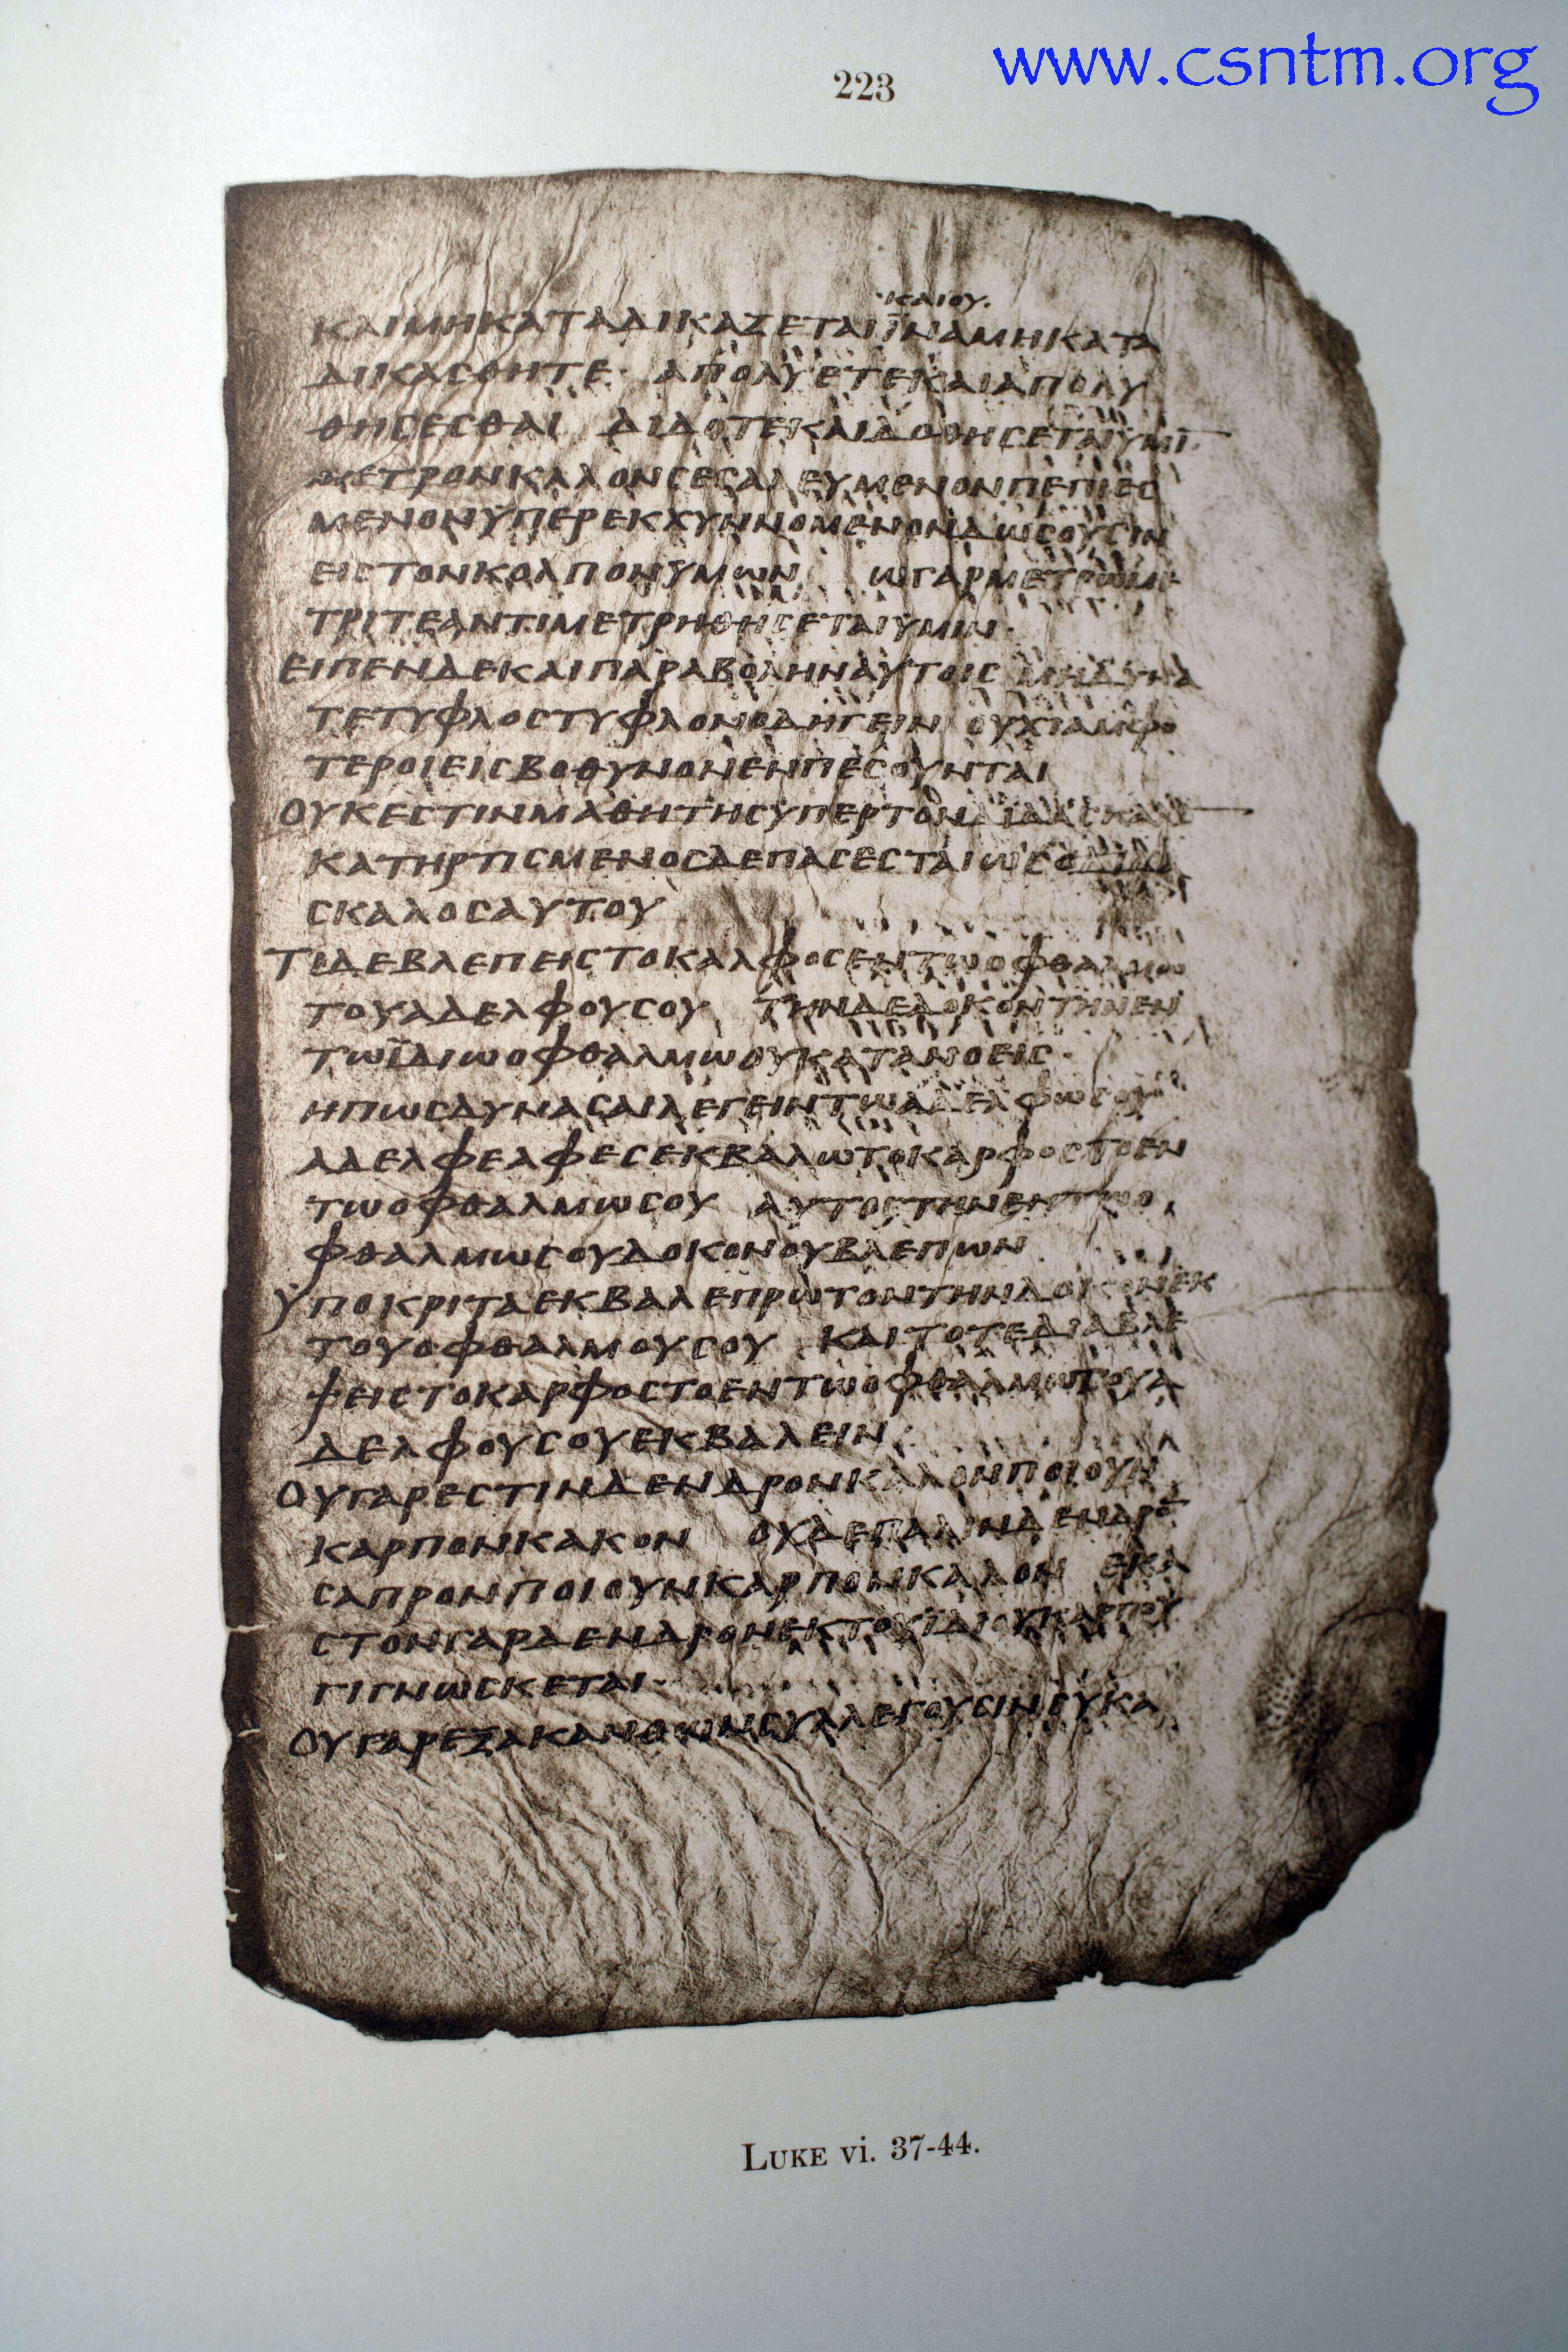 www.csntm.org
223
ΚΑΙΟΥ
ΚΑΙΜΗΚΑΤΑΔΙΚΑΖΕΤΑΙΪΝΑΜΗΚΑΤΑ
ΔΙΚΑСΘΗΤΕ· ΑΠΟΛΥΕΤΕΚΑΙΑΠΟΛΥ
ΘΗСΕСΘΑΙ ΔΙΔΟΤΕΚΑΙΔΟΘΗСΕΤΑΙΥΜΙ̅
ΜΕΤΡΟΝΚΑΛΟΝСΕСΑΛΕΥΜΕΝΟΝΠΕΠΙΕС
ΜΕΝΟΝΥΠΕΡΕΚΧΥΝΝΟΜΕΝΟΝΔΩСΟΥСΙΝ
ΕΙСΤΟΝΚΟΛΠΟΝΥΜΩΝ ΩΓΑΡΜΕΤΡΩΜΕ
ΤΡΙΤΕΑΝΤΙΜΕΤΡΗΘΗСΕΤΑΙΥΜΙΝ·
ΕΙΠΕΝΔΕΚΑΙΠΑΡΑΒΟΛΗΝΑΥΤΟΙС ΜΗΔΥΝΑ
ΤΕΤΥΦΛΟСΤΥΦΛΟΝΟΔΗΓΕΙΝ ΟΥΧΙΑΜΦΟ
ΤΕΡΟΙΕΙСΒΟΘΥΝΟΝΕΝΠΕСΟΥΝΤΑΙ
ΟΥΚΕСΤΙΝΜΑΘΗΤΗСΥΠΕΡΤΟΝ
ΚΑΤΗΡΤΙСΜΕΝΟСΔΕΠΑСΕСΤΑΙΩСΟΔΙΔΑ
СΚΑΛΟСΑΥΤΟΥ
ΤΙΔΕΒΛΕΠΕΙСΤΟΚΑΛΦΟСΕΝΤΩΟΦΘΑΛΜΩ
ΤΟΥΑΔΕΛΦΟΥСΟΥ ΤΗΝΔΕΔΟΚΟΝΤΗΝΕΝ
ΤΩΪΔΙΩΟΦΘΑΛΜΩΟΥΚΑΤΑΝΟΕΙС·
ΗΠΩСΔΥΝΑСΑΙΛΕΓΕΙΝΤΩΑΔΕΛΦΩСΟΥ
ΑΔΕΛΦΕΑΦΕСΕΚΒΑΛΩΤΟΚΑΡΦΟСΤΟΕΝ
ΤΩΟΦΘΑΛΜΩСΟΥ ΑΥΤΟСΤΗΝΕΝΤΩΟ
ΦΘΑΛΜΩСΟΥΔΟΚΟΝΟΥΒΛΕΠΩΝ
ΥΠΟΚΡΙΤΑΕΚΒΑΛΕΠΡΩΤΟΝΤΗΝΔΟΚΟΝΕΚ
ΤΟΥΟΦΘΑΛΜΟΥСΟΥ ΚΑΙΤΟΤΕΔΙΑΒΛΕ
ΨΕΙСΤΟΚΑΡΦΟСΤΟΕΝΤΩΟΦΘΑΛΜΩΤΟΥΑ
ΔΕΛΦΟΥСΟΥΕΚΒΑΛΕΙΝ·
ΟΥΓΑΡΕСΤΙΝΔΕΝΔΡΟΝΚΑΛΟΝΠΟΙΟΥΝ
ΚΑΡΠΟΝΚΑΚΟΝ ΟΥΔΕΠΑΛΙΝΔΕΝΔΡΟ̅
СΑΠΡΟΝΠΟΙΟΥΝΚΑΡΠΟΝΚΑΛΟΝ ΕΚΑ
СΤΟΝΓΑΡΔΕΝΔΡΟΝΕΚΤΟΥΪΔΙΟΥΚΑΡΠΟΥ
ΓΙΓΝΩСΚΕΤΑΙ·
ΟΥΓΑΡΕΞΑΚΑΝΘΩΝСΥΛΛΕΓΟΥСΙΝСΥΚΑ
LUKE vi. 37-44.